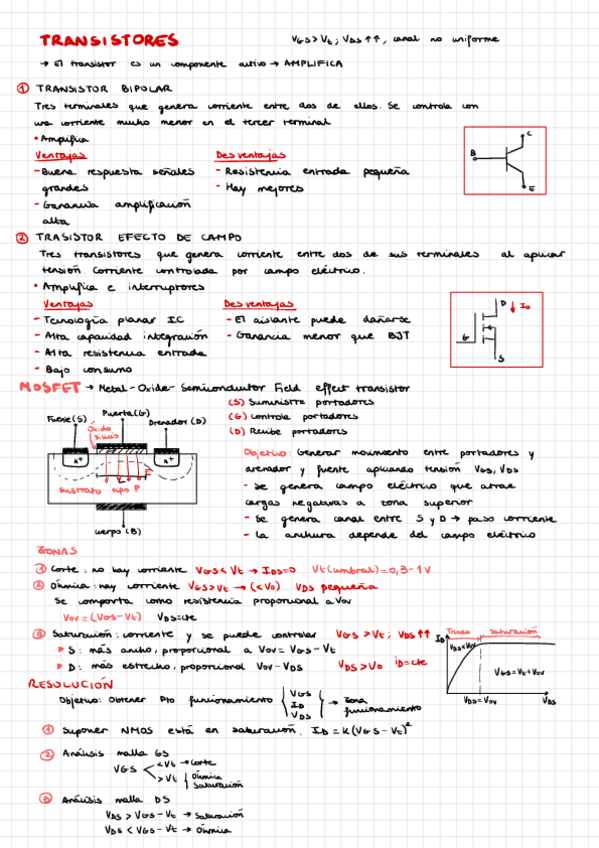 TRANSISTORES
VGS > Vt ; VDS ↑↑, canal no uniforme
→ El transistor es un componente activo → AMPLIFICA
① TRANSISTOR BIPOLAR
Tres terminales que genera corriente entre dos de ellos. Se controla con
una corriente mucho menor en el tercer terminal
• Amplifica
Ventajas
- Buena respuesta señales
grandes
- Ganancia amplificación
alta
Desventajas
- Resistencia entrada pequeña
- Hay mejores
C
B
E
② TRASISTOR EFECTO DE CAMPO
Tres transistores que genera corriente entre dos de sus terminales al aplicar
tensión. Corriente controlada por campo eléctrico.
• Amplifica e interruptores
Ventajas
- Tecnología planar IC
- Alta capacidad integración
- Alta resistencia entrada
- Bajo consumo
Desventajas
- El aislante puede dañarse
- Ganancia menor que BJT
D
ID
G
S
MOSFET → Metal-Oxide-Semiconductor Field effect transistor
(S) Suministra portadores
(G) Controla portadores
(D) Recibe portadores
Fuente (S)
Puerta (G)
Drenador (D)
Óxido
n+
n+
E
sustrato tipo P
cuerpo (B)
Objetivo: Generar movimiento entre portadores y
drenador y fuente aplicando tensión VGS, VDS
- Se genera campo eléctrico que atrae
cargas negativas a zona superior
- Se genera canal entre S y D → paso corriente
- La anchura depende del campo eléctrico
ZONAS
① Corte: no hay corriente VGS < Vt → IDS=0 Vt (umbral) = 0,3 - 1 V
② Óhmica: hay corriente VGS > Vt → (< V0) VDS pequeña
Se comporta como resistencia proporcional a Vov
Vov = (VGS - Vt) VDS = cte
③ Saturación: corriente y se puede controlar VGS > Vt ; VDS ↑↑
▶ S: más ancho, proporcional a Vov = VGS - Vt
▶ D: más estrecho, proporcional Vov - VDS VDS > V0 iD = cte
ID
Triodo
saturación
VDS < Vov
VGS = Vt + Vov
VDS = Vov
VDS
RESOLUCIÓN
Objetivo: Obtener Pto funcionamiento { VGS ID VDS } → Zona funcionamiento
① Suponer NMOS está en saturación. ID = K (VGS - Vt)²
② Análisis malla GS
VGS < Vt → Corte
> Vt { Óhmica
Saturación
③ Análisis malla DS
VDS > VGS - Vt → Saturación
VDS < VGS - Vt → Óhmica